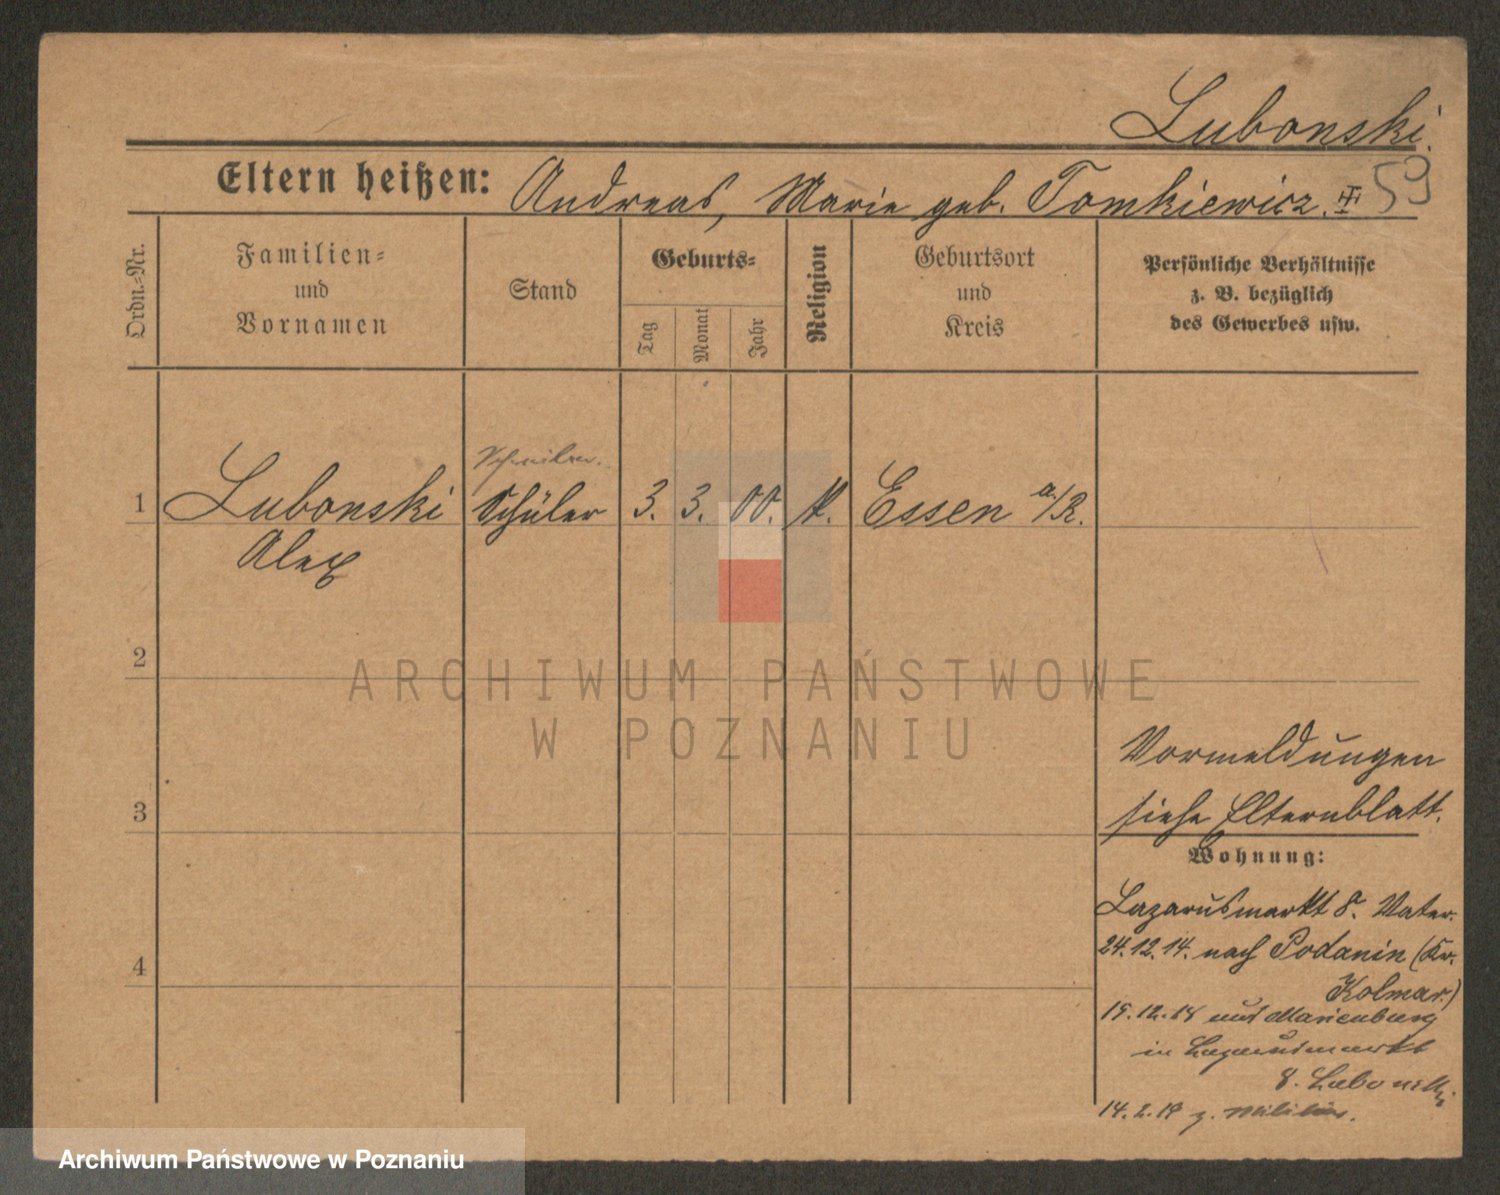 Lubonski.
Eltern heißen: Andreas, Marie geb. Tomkiewicz. 59
Ordn.-Nr.
Familien-
und
Vornamen
Stand
Geburts-
Tag
Monat
Jahr
Religion
Geburtsort
und
Kreis
Persönliche Verhältnisse
z. B. bezüglich
des Gewerbes usw.
Schreiber.
1 Lubonski Schüler 3. 3. 00. k. Essen a/R.
Alex
2
ARCHIWUM PAŃSTWOWE
W POZNANIU
Vormeldungen
3 siehe Elternblatt.
Wohnung:
Lazarusmarkt 8. Vater.
24.12.14. nach Podanin (Kr.
4
Kolmar)
19.12.18 aus Marienburg
in Lazarusmarkt
8. Lubonski
14.2.19 z. Militär.
Archiwum Państwowe w Poznaniu